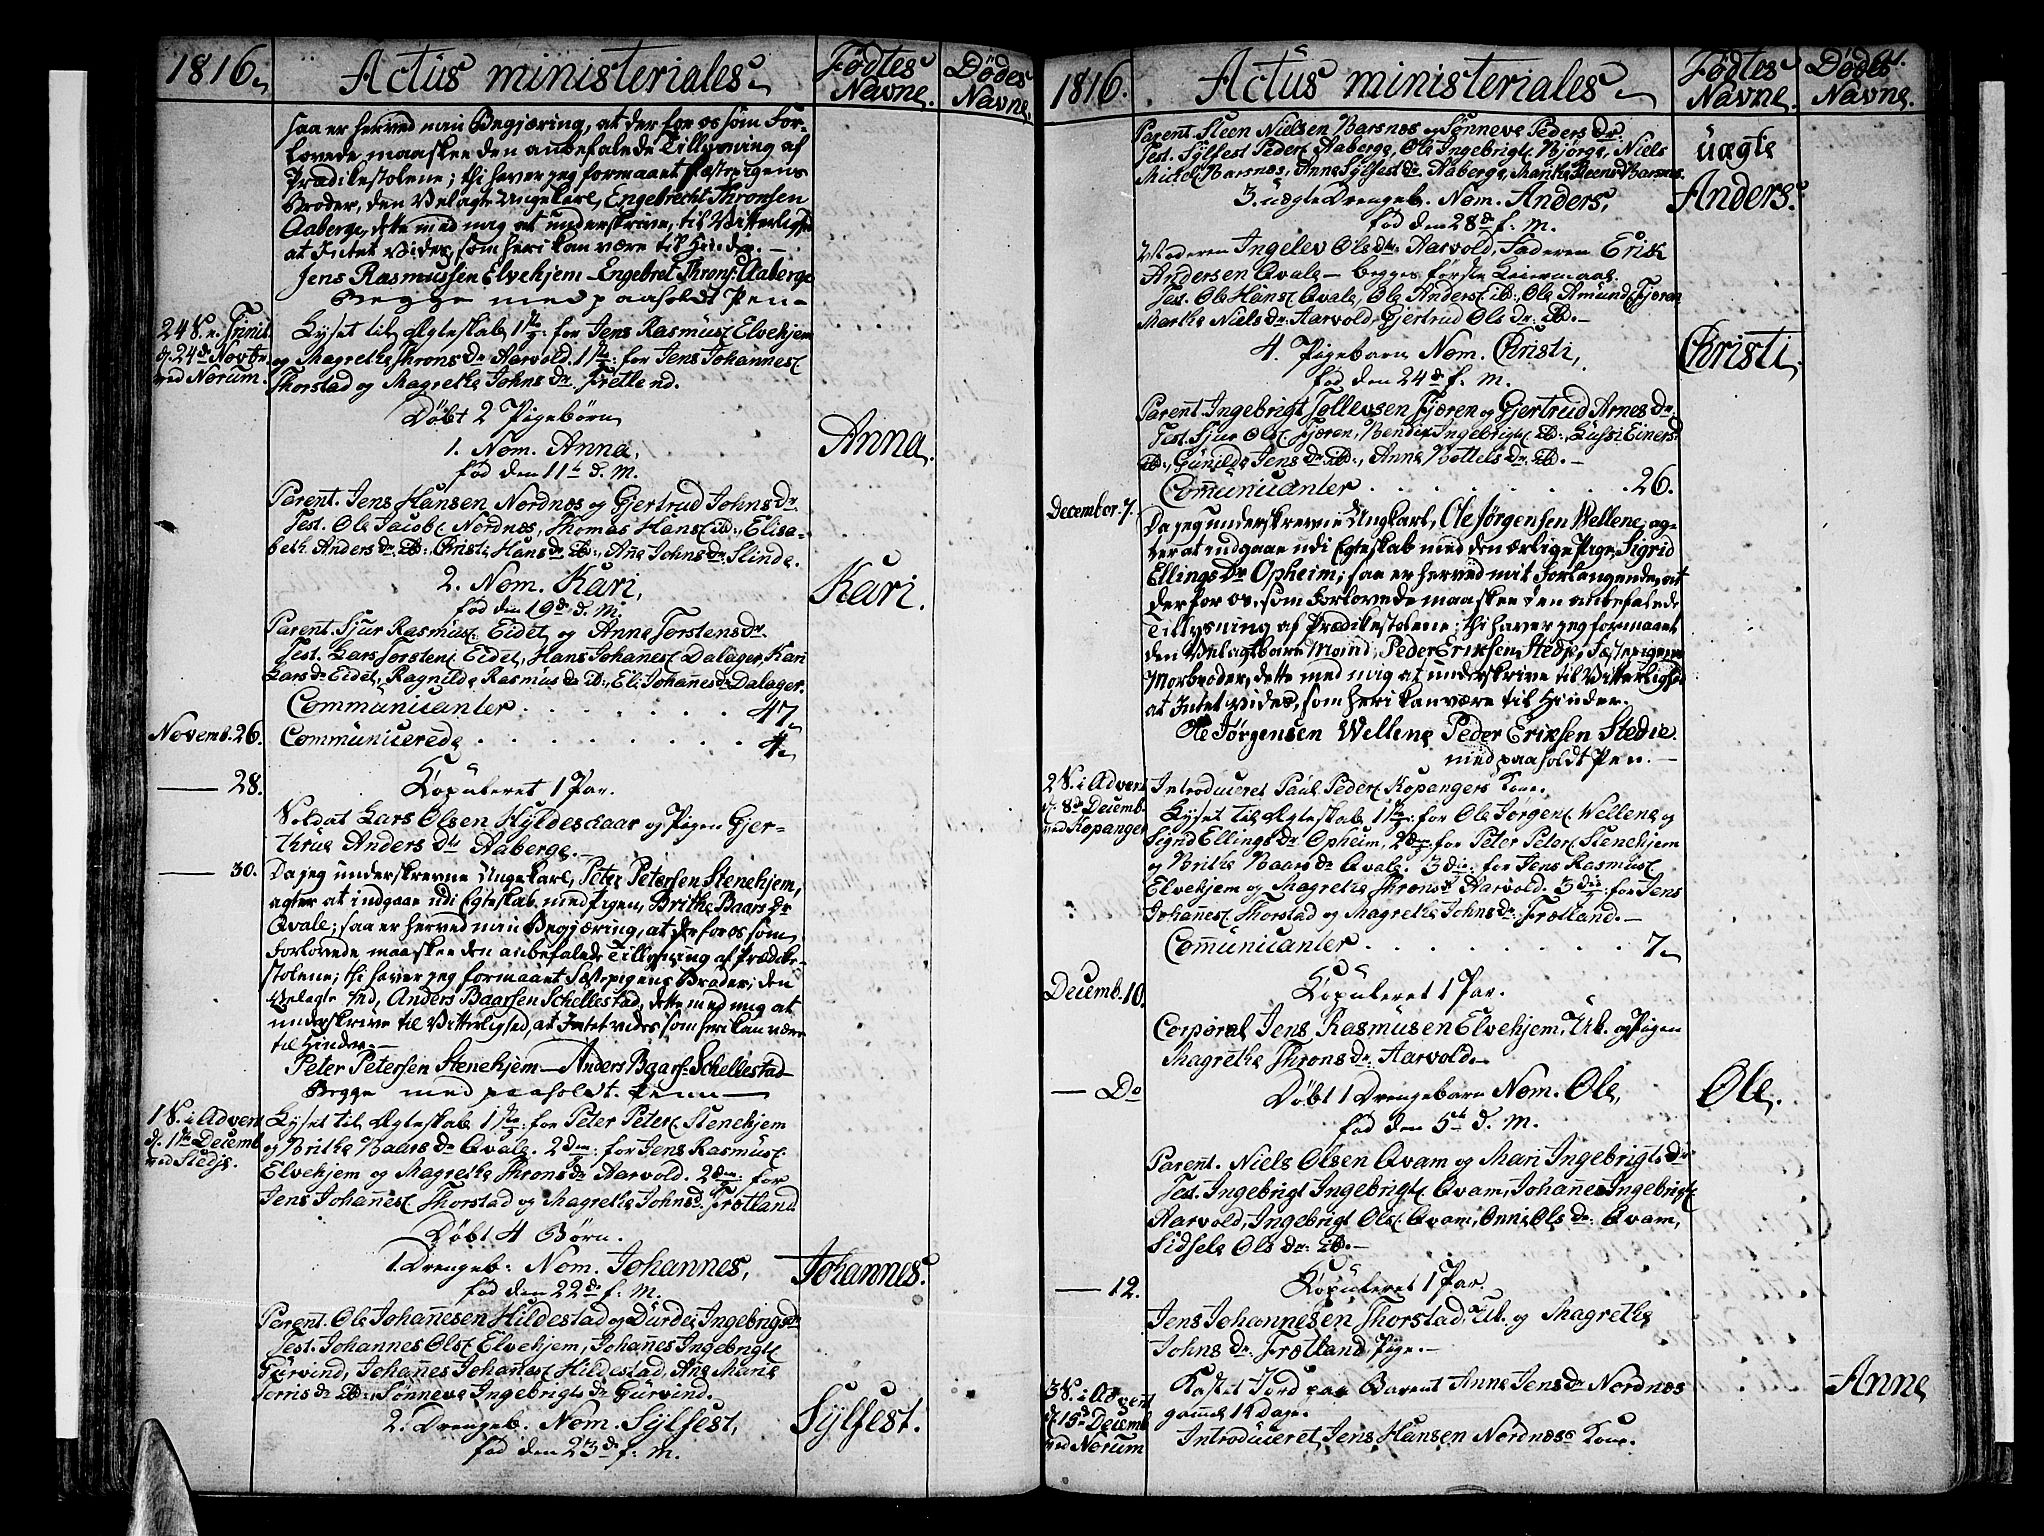 1816.
Actus ministeriales.
Fødtes Navne.
Dødes Navne.
saa er herved min Begjæring, at der for os som For-
lovede maaskee den anbefalede Tillysning af
Prædikestolene; thi haver jeg formaaet Fæstepigens
Broder, den Velagte Ungekarl, Engebrecht Thronsen
Aaberge, dette med mig at underskrive, til Vitterlighed
at Intet vides, som heri kan være til Hinder.—
Jens Rasmussen Elvehjem — Engebret Throns. Aaberge
Begge med paaholdt Pen—
24 S. e. Trinit.
d. 24de Novbr.
ved Norum.
Lyset til Ægteskab 1ste: for Jens Rasmus. Elvehjem
og Magrethe Throns Dr Aarvold. 1ste: for Jens Johannes.
Thorstad og Magrethe Johns Dr. Fretland.
Døbt 2 Pigebørn
1. Nom. Anna,
Anna.
fød den 11te d. M.
Parent. Jens Hansen Nordnæs og Gjertrud Johns Dr
Test. Ole Jacobs. Nordnæs, Thomas Hans. ib:, Elisa-
beth Anders Dr. ib:, Christi Hans Dr. ib:, Ane Johns Dr Slinde.
2. Nom. Kari,
Kari.
fød den 19de d. M.
Parent. Sjur Rasmus. Eidet, og Anna Torstens Dr.
Test. Lars Torstens. Eidet, Hans Johannes. Dalager, Kari
Lars Dr Eidet, Ragnilde Rasmus Dr ib:, Eli Johannes Dr Dalager.
Communicanter . . . . . . . 47.
Novemb. 26.
Communicerede . . . . . . . . 4.
— 28.
Kopuleret 1 Par.
Soldat Lars Olsen Hyldeskaar og Pigen Gjer-
thrue Anders Dtr Aaberge.—
— 30.
Da jeg underskrevne Ungekarl, Peter Petersen Stenehjem,
agter at indgaae udi Egteskab med Pigen, Brithe Baars Dr
Qvale; saa er herved min Begjæring, at der for os, som
Forlovede maaskee den anbefalede Tillysning af Prædike-
stolene; thi haver jeg formaaet Fæstepigens Broder, den
Velagte Anders Baarsen Schellestad, dette med mig at
underskrive til Vitterlighed, at Intet vides som heri kan være
til Hinder.—
Peter Petersen Stenehjem — Anders Baars. Schellestad—
Begge med paaholdt Penn—
1 S. i Advent
d. 1ste Decemb.
ved Stedje.
Lyset til Ægteskab 1ste: for Peter Peters. Stenehjem
og Brithe Baars Dr Qvale. 2den: for Jens Rasmus.
Elvehjem og Magrethe Throns Dr Aarvold. 2den: for
Jens Johannes. Thorstad og Magrethe Johns D. Frøtland.
Døbt 4 Børn.
1. Drengeb: Nom. Johannes,
Johannes.
fød den 22de f. M.
Parent. Ole Johannesen Hildestad og Durdei Ingebrigts Dr
Test. Johannes Ols. Elvehjem, Johannes Ingebrigt.
Gurvind, Johannes Johannes. Hildestad, Ane Marie
Torris Dr ib:, Sønneve Ingebrigts Dr Gurvind.
2. Drengeb: Nom. Sylfest,
Sylfest.
fød den 23de f. M.
1816.
Actus ministeriales.
Fødtes Navne.
Dødes Navne.
Parent. Steen Nielsen Barsnæs og Sønneve Peders Dr.
Test. Sylfest Peders. Aaberge, Ole Ingebrigts. Bjørge, Niels
Michels. Barsnæs, Anne Sylfest Dr. Aaberge, Marthe Steens Dr Barsnæs
uægte
3. uægte Drengeb. Nom. Anders,
Anders.
fød den 28de f. M.
Moderen Ingelev Ols Dtr. Aarvold, Faderen Erik
Andersen Qvale — begges første Leiermaal.
Test. Ole Hans. Qvale, Ole Anders. ib:, Ole Amund. Fjæren
Marthe Niels Dr. Aarvold, Gjertrud Ols Dr. ib.—
4. Pigebarn Nom. Christi,
Christi.
fød den 24de f. M.
Parent. Ingebrigt Tollevsen Fjæren og Gjertrud Arnes Dr.
Test. Sjur Ols. Fjæren, Bendix Ingebrigts. ib:, Lussi Einers D
ib:, Gunilde Jens Dr. ib:, Anna Bottels Dr. ib.—
Communicanter . . . . . . . . 26.
December 7.
Da jeg underskrevne Ungkarl, Ole Jørgensen Wellene, ag-
ter at indgaae udi Egteskab med den ærlige Pige, Sigrid
Ellings Dr Opheim; saa er herved mit Forlangende, at
der for os, som Forlovede maaskee den anbefalede
Tillysning af Prædikestolene; thi haver jeg formaaet
den Velagtbare Mand, Peder Eriksen Stedje, Fæstepigens
Morbroder, dette med mig at underskrive til Vitterlighed
at Intet vides, som heri kan være til Hinder.
Ole Jørgensen Wellene Peder Eriksen Stedie
med paaholdt Pen.—
2 S. i Advent
d. 8de Decemb.
ved Kopanger
Introduceret Paul Peders. Kopangers Kone.
Lyset til Ægteskab 1ste: for Ole Jørgens. Wellene og
Sigrid Ellings Dr Opheim, 2den for Peter Peters. Stenehjem
og Brithe Baars Dr Qvale. 3die: for Jens Rasmus.
Elvehjem og Magrethe Throns D Aarvold. 3die: for Jens
Johannes. Thorstad og Magrethe Johns Dr. Frøtland.—
Communicanter . . . . . . . . 7.
Decemb. 10.
Kopuleret 1 Par.
Corporal Jens Rasmusen Elvehjem, Uk. og Pigen
Magrethe Throns Dr. Aarvold.—
— Do
Døbt 1 Drengebarn Nom. Ole,
Ole.
fød den 5te d. M.
Parent. Niels Olsen Qvam og Mari Ingebrigts Dr
Test. Ingebrigt Ingebrigts. Qvam, Johannes Ingebrigts.
Aarvold, Ingebrigt Ols. Qvam, Anne Ols Dr. Qvam,
Sidsele Ols Dr. ib.—
— 12.
Kopuleret 1 Par.
Jens Johannesen Thorstad, Uk. og Magrethe
Johns Dr. Frøtland Pige.—
3 S. i Advent
d. 15de Decemb.
ved Norum
Kastet Jord paa Barnet Anne Jens Dr Nordnæs
Anne
gammel 14 Dage.
Introduceret Jens Hansen Nordnæs's Kone.